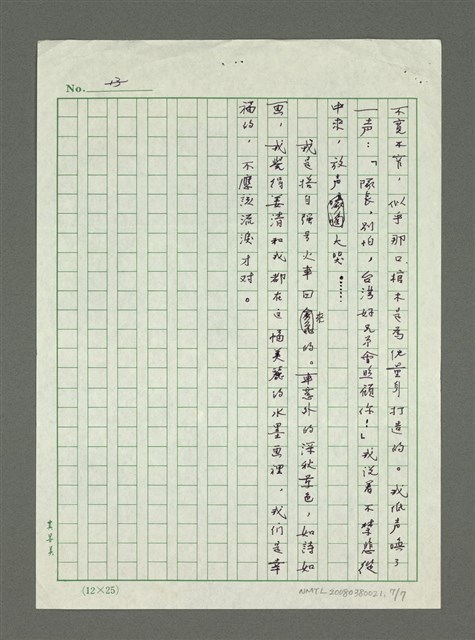 No. 43
不寬不窄，似乎那口棺木是為他量身打造的。我低声喚了
一声：「隊長，別怕，台湾好兄弟會照顧你！」我说着不禁悲從
中來，放声大哭……
我是搭自强号火車回來的。車窓外的深秋景色，如詩如
画，我覺得姜清和我都在這幅美麗的水墨画裡，我们是幸
福的，不應該流淚才对。
(12×25)
NMTL20080380021, 7/7